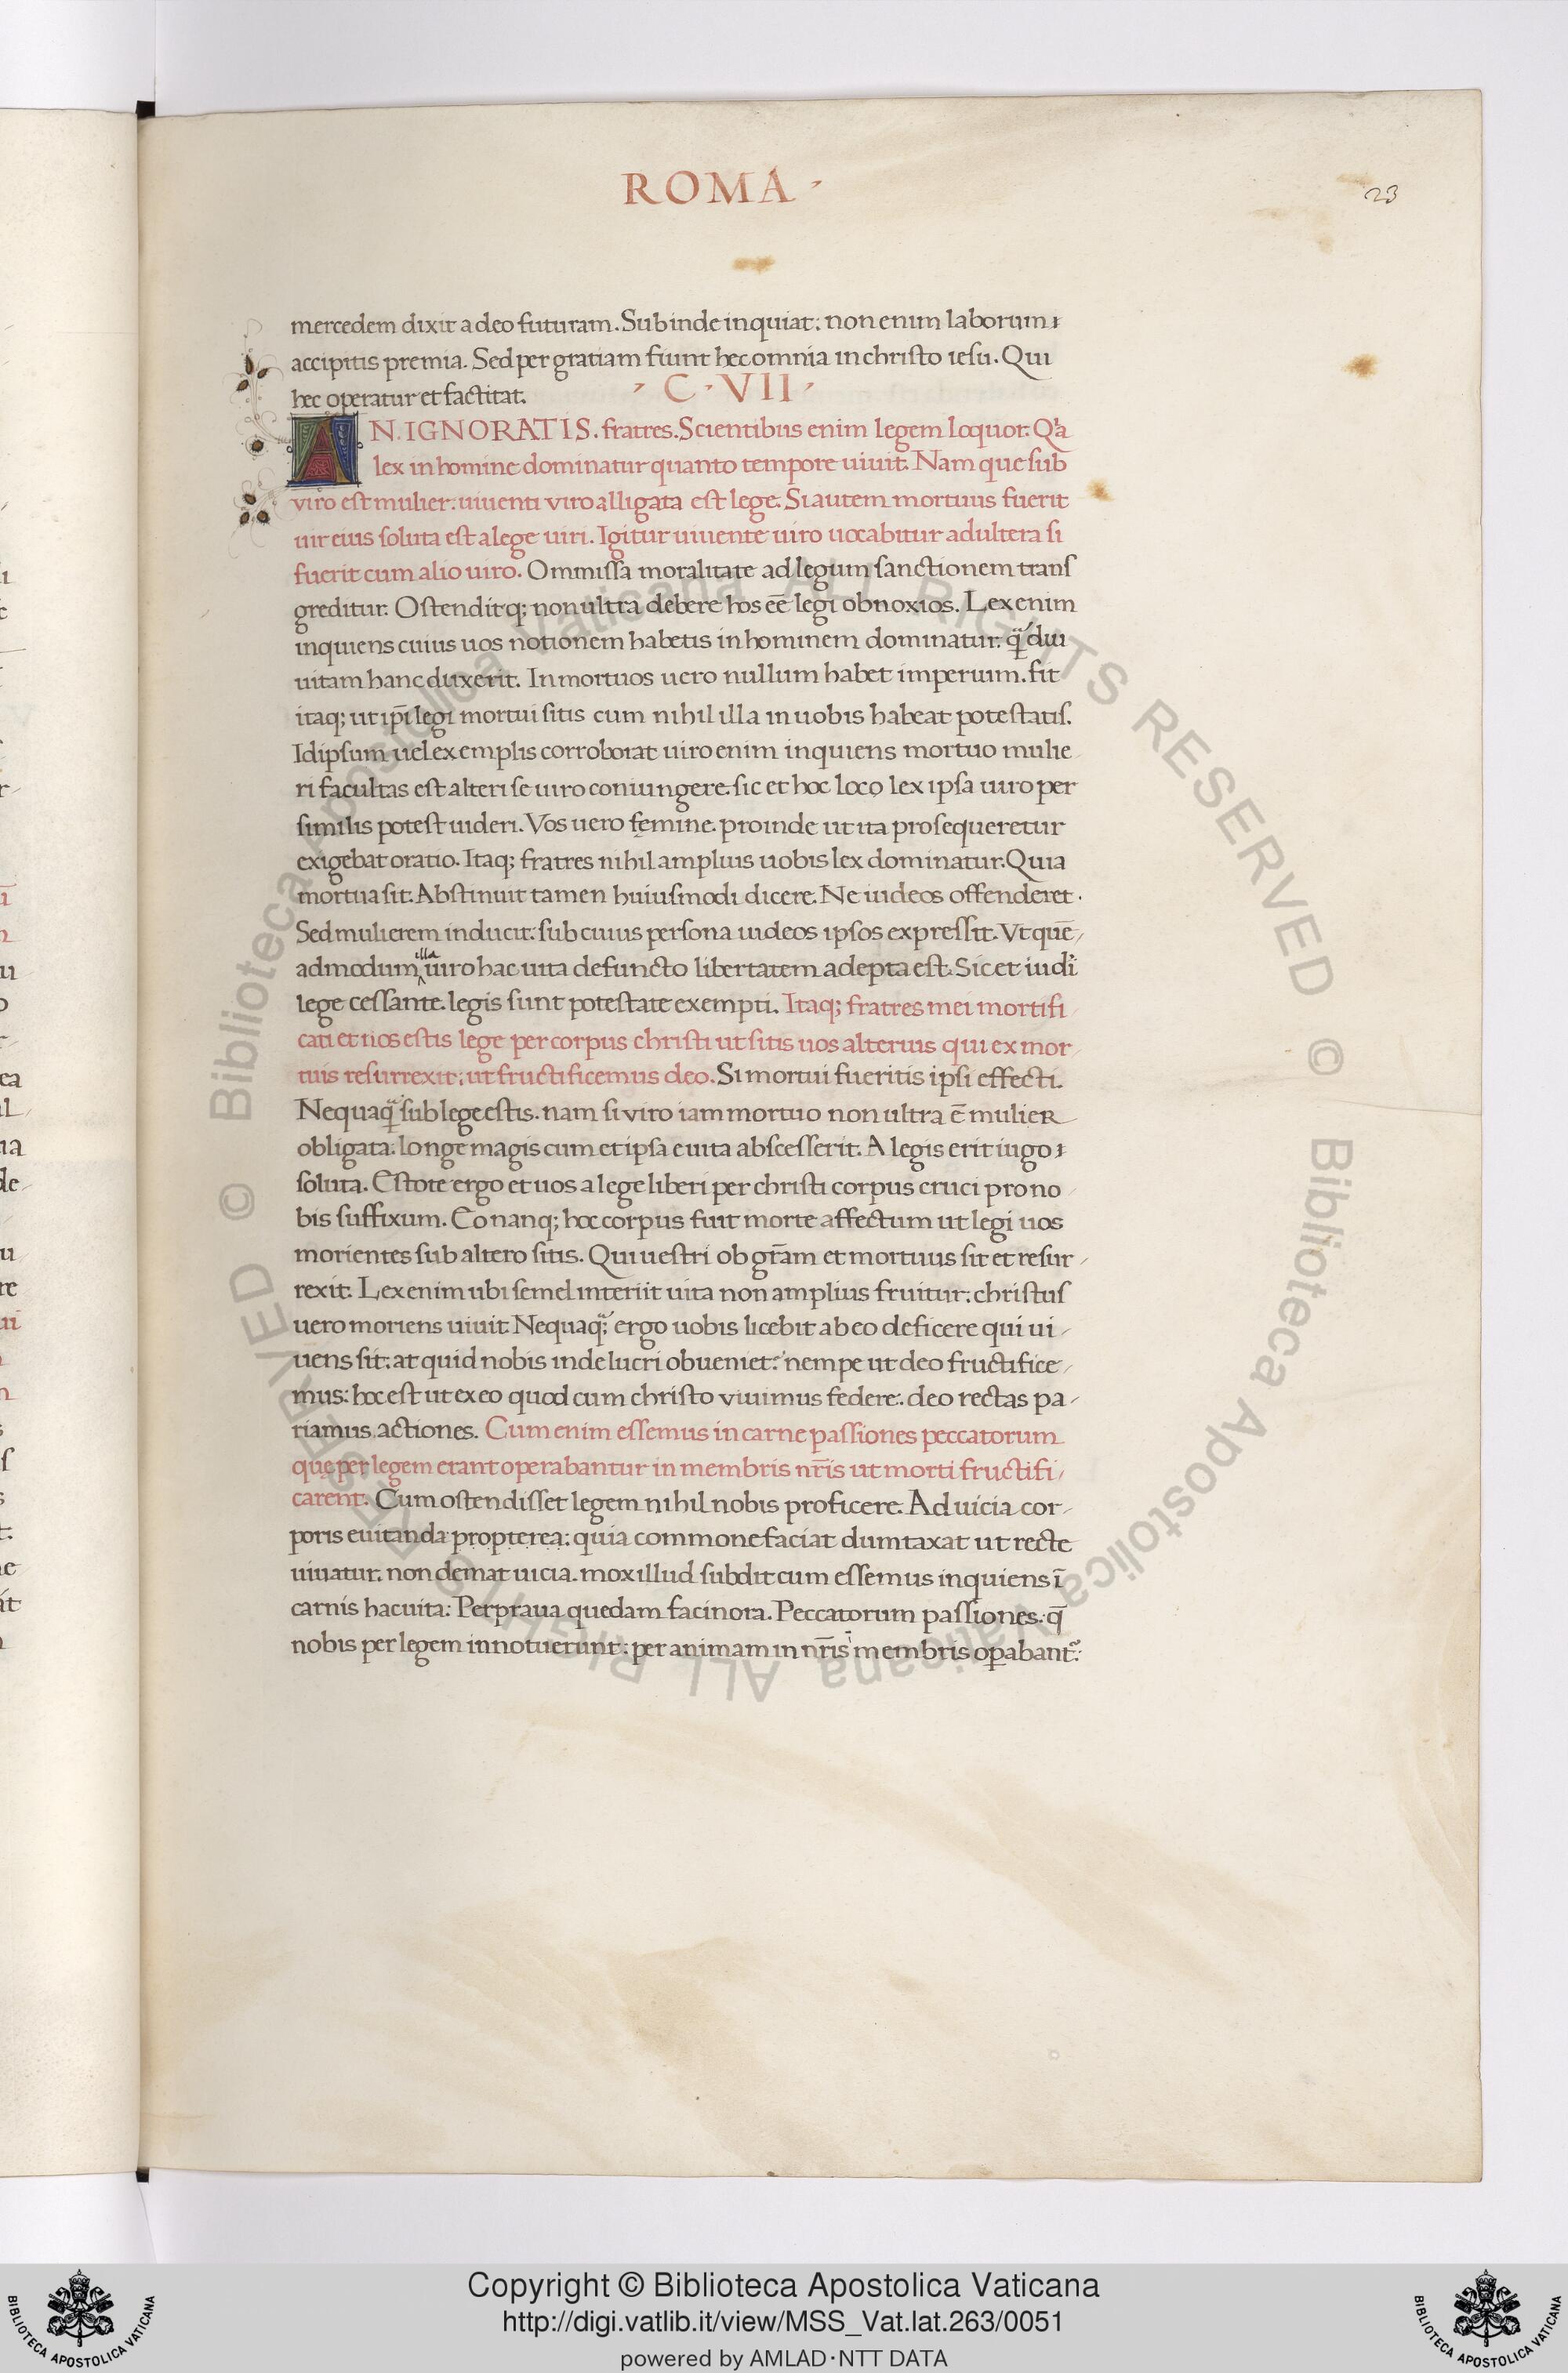 ROMA
23
mercedem dixit a deo futuram. Subinde inquiat: non enim laborum
accipitis premia. Sed per gratiam fiunt hec omnia in christo iesu. Qui
hec operatur et factitat.
C. VII
AN. IGNORATIS. fratres. Scientibus enim legem loquor. Qa
lex in homine dominatur quanto tempore uiuit. Nam que sub
viro est mulier. uiuenti viro alligata est lege. Si autem mortuus fuerit
uir eius soluta est a lege uiri. Igitur uiuente uiro uocabitur adultera si
fuerit cum alio uiro. Ommissa moralitate ad legum sanctionem trans
greditur. Ostenditq; non ultra debere hos eē legi obnoxios. Lex enim
inquiens cuius uos notionem habetis in hominem dominatur. q̄ diu
uitam hanc duxerit. In mortuos uero nullum habet imperium. fit
itaq; ut ip̄i legi mortui sitis cum nihil illa in uobis habeat potestatis.
Idipsum uel exemplis corroborat uiro enim inquiens mortuo mulie
ri facultas est alteri se uiro coniungere. sic et hoc loco lex ipsa uiro per
similis potest uideri. Vos uero femine. proinde ut ita prosequeretur
exigebat oratio. Itaq; fratres nihil amplius uobis lex dominatur. Quia
mortua sit. Abstinuit tamen huiusmodi dicere. Ne iudeos offenderet.
Sed mulierem inducit: sub cuius persona iudeos ipsos expressit. Vt quē
illa
admodum uiro hac uita defuncto libertatem adepta est. Sic et iudi
lege cessante. legis sunt potestate exempti. Itaq; fratres mei mortifi
cati et uos estis lege per corpus christi ut sitis uos alterius qui ex mor
tuis resurrexit: ut fructificemus deo. Si mortui fueritis ipsi effecti.
Nequaq̄ sub lege estis. nam si viro iam mortuo non ultra ē mulier
obligata: longe magis cum et ipsa e uita abscesserit. A legis erit iugo
soluta. Estote ergo et uos a lege liberi per christi corpus cruci pro no
bis suffixum. Eo nanq; hoc corpus fuit morte affectum ut legi uos
morientes sub altero sitis. Qui uestri ob gr̄am et mortuus sit et resur
rexit. Lex enim ubi semel interiit uita non amplius fruitur: christus
uero moriens uiuit. Nequaq; ergo uobis licebit ab eo deficere qui ui
uens sit: at quid nobis inde lucri obueniet: nempe ut deo fructifice
mus: hoc est ut ex eo quod cum christo viuimus federe: deo rectas pa
riamus actiones. Cum enim essemus in carne passiones peccatorum
que per legem erant operabantur in membris nr̄is ut morti fructifi
carent. Cum ostendisset legem nihil nobis proficere. Ad uicia cor
poris euitanda propterea: quia commonefaciat dumtaxat ut recte
uiuatur. non demat uicia. mox illud subdit cum essemus inquiens ī
carnis hac uita: Perpraua quedam facinora. Peccatorum passiones: q̄
nobis per legem innotuerunt: per animam in nr̄is membris opabant
© Biblioteca Apostolica Vaticana ALL RIGHTS RESERVED
© Biblioteca Apostolica Vaticana ALL RIGHTS RESERVED
Copyright © Biblioteca Apostolica Vaticana
http://digi.vatlib.it/view/MSS_Vat.lat.263/0051
powered by AMLAD·NTT DATA
BIBLIOTECA APOSTOLICA VATICANA
BIBLIOTECA APOSTOLICA VATICANA